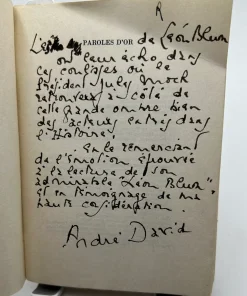 R
PAROLES D'OR de Léon Blum
ont leur écho dans
ces où le
Président Jules Moch
retrouve à côté de
cette grande ombre bien
des acteurs entrés dans
l'Histoire.
En le remerciant
de l'émotion éprouvée
à la lecture de son
admirable "Léon Blum",
et en témoignage de ma
haute considération.
André David